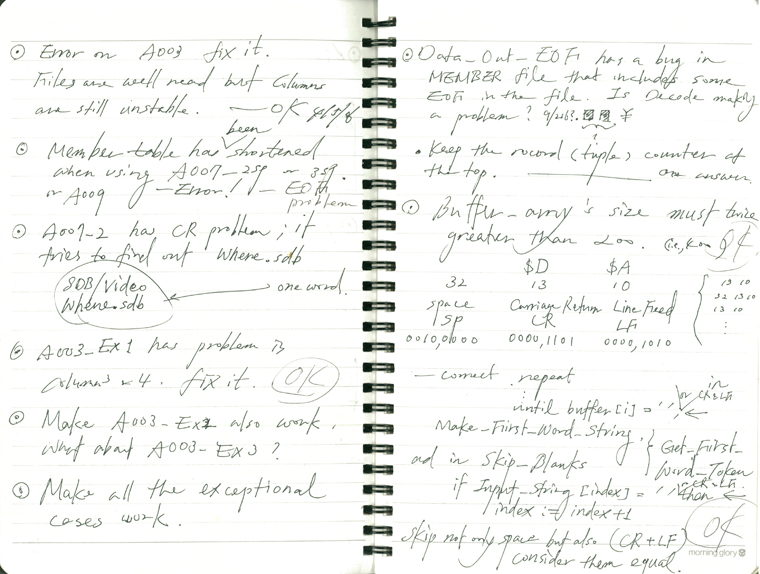 Error on A003 fix it.
Files are well read but Columns
are still unstable. — OK
been
Member table has shortened
when using A007-2sp or 3sp.
or A009 — Error! — EOFi
problem
A007-2 has CR problem; it
tries to find out Where.sdb
SDB/Video
Where.sdb ← one word.
A003-Ex1 has problem is
Columns = 4. fix it. OK
Make A003-Ex2 also work.
What about A003-Ex3?
Make all the exceptional
cases work.
Data_Out_EOFi has a bug in
MEMBER file that includes some
EOFi in the file. Is Decode making
a problem? 9/26?
Keep the record (tuple) counter at
the top. — one answer.
Buffer_array's size must twice
greater than 200. OK
$D $A
32 13 10
space Carriage Return Line Feed
Sp CR LF
0010,0000 0000,1101 0000,1010
13 10
32 13 10
13 10
— correct repeat
until buffer[i] = ' ' or in CR & LF
Make_First_Word_String
and in Skip_Blanks
Get_First_
Word_Token
if Input_String [index] = ' ' CR LF then
index := index+1
Skip not only space but also (CR+LF) OK
consider them equal.
morning glory